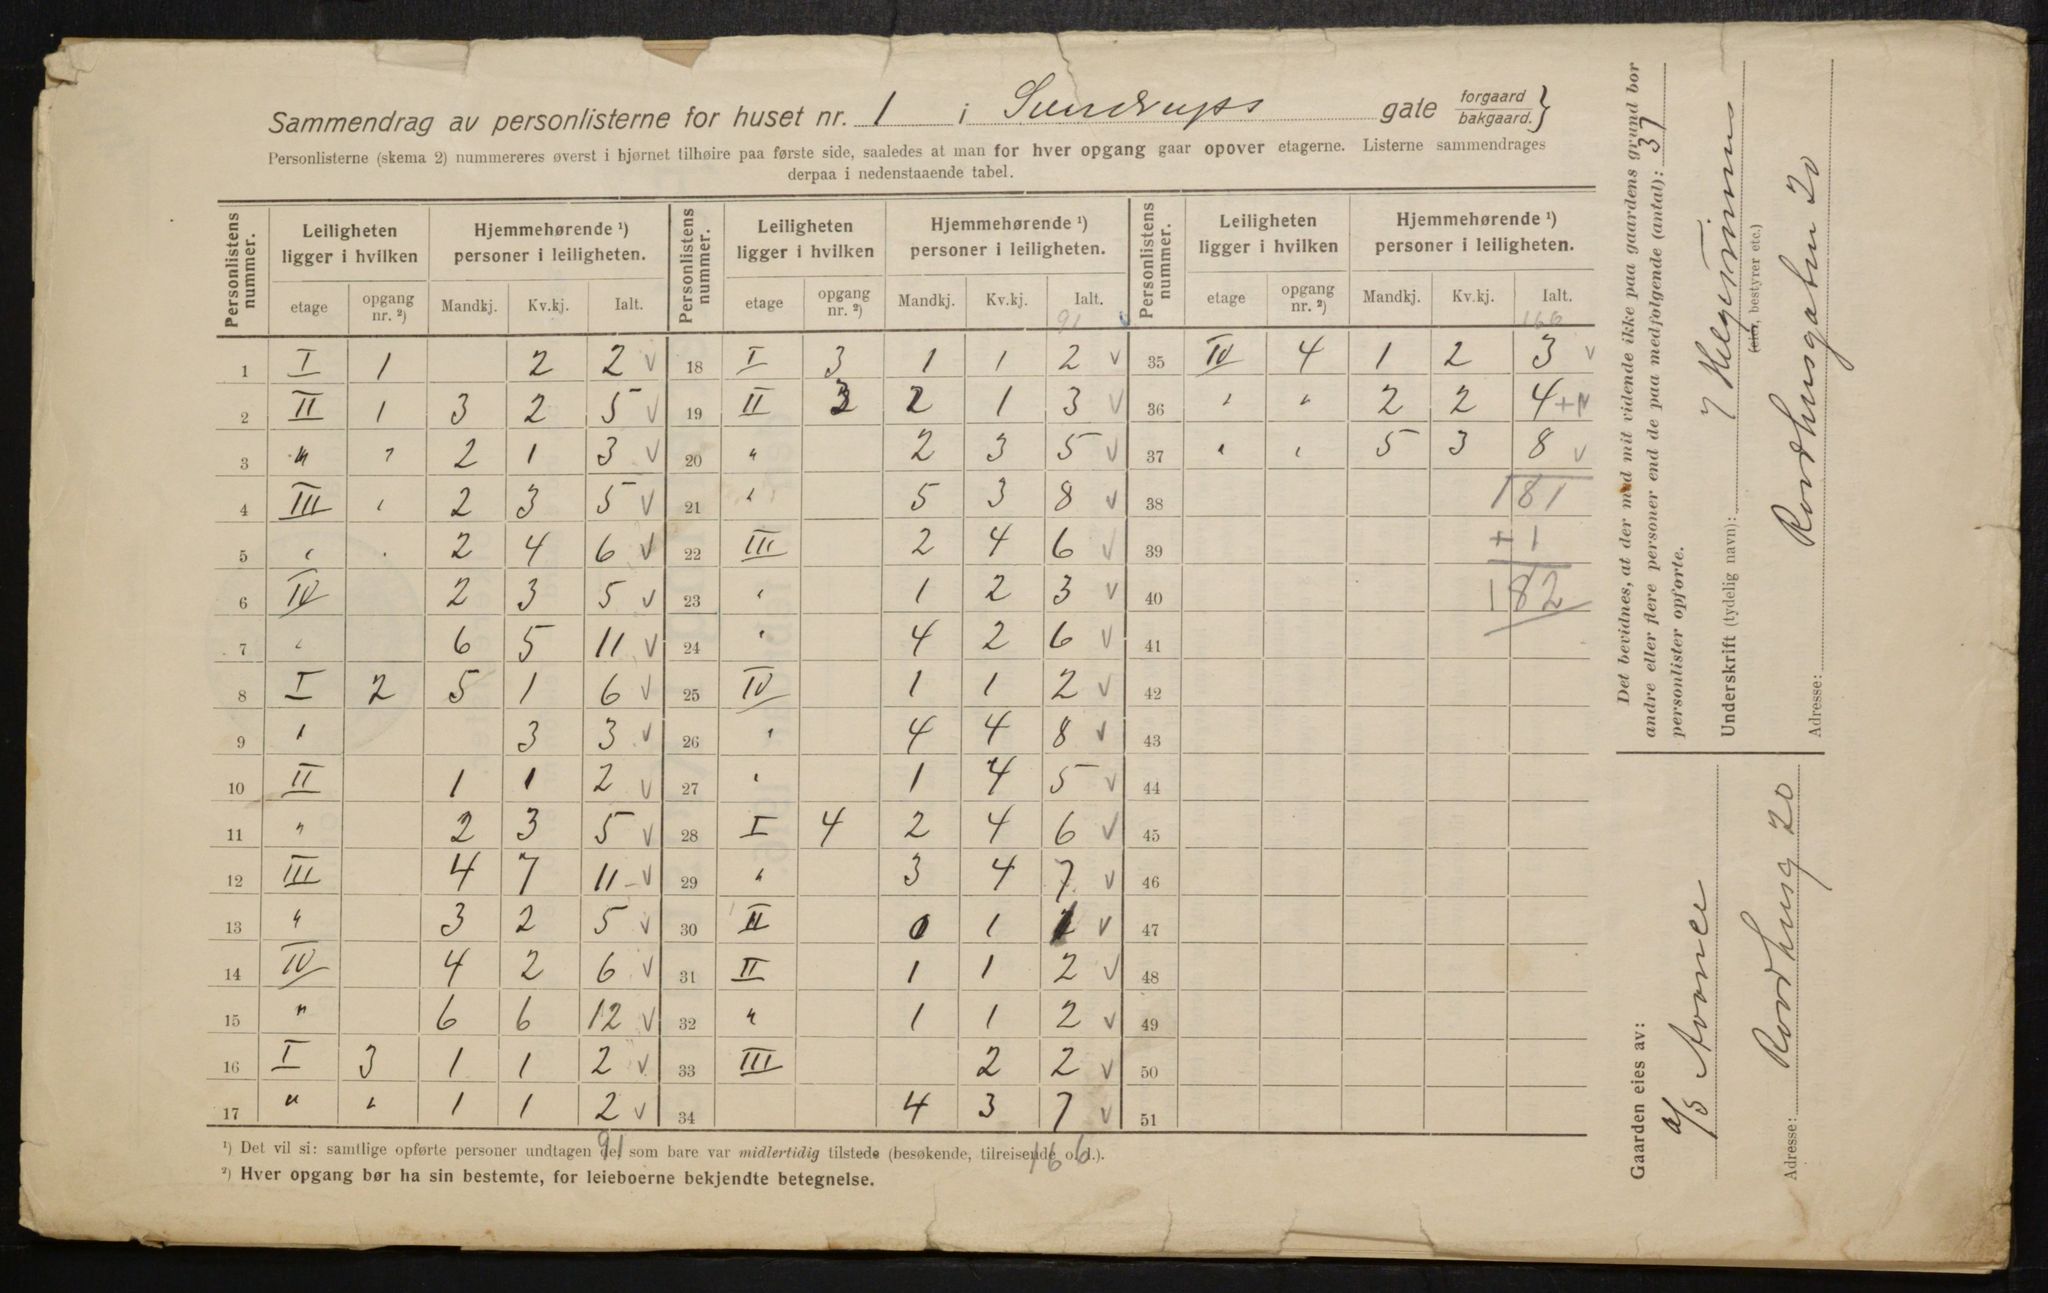 Sammendrag av personlisterne for huset nr. 1 i Sundrups gate forgaard bakgaard. }
Personlisterne (skema 2) nummereres øverst i hjørnet tilhøire paa første side, saaledes at man for hver opgang gaar opover etagerne. Listerne sammendrages
derpaa i nedenstaaende tabel.
Personlistens nummer. | Leiligheten ligger i hvilken | Hjemmehørende ¹) personer i leiligheten. | Personlistens nummer. | Leiligheten ligger i hvilken | Hjemmehørende ¹) personer i leiligheten. | Personlistens nummer. | Leiligheten ligger i hvilken | Hjemmehørende ¹) personer i leiligheten.
etage | opgang nr. ²) | Mandkj. | Kv.kj. | Ialt. | etage | opgang nr. ²) | Mandkj. | Kv.kj. | Ialt. | etage | opgang nr. ²) | Mandkj. | Kv.kj. | Ialt.
91 v 166
1 I 1 2 2 v 18 I 3 1 1 2 v 35 IV 4 1 2 3 v
2 II 1 3 2 5 v 19 II 3 2 1 3 v 36 " " 2 2 4 +1 v
3 " " 2 1 3 v 20 " 2 3 5 v 37 " " 5 3 8 v
4 III " 2 3 5 v 21 " 5 3 8 v 38 181
5 " " 2 4 6 v 22 III 2 4 6 v 39 + 1
6 IV 2 3 5 v 23 " 1 2 3 v 40 182
7 " 6 5 11 v 24 " 4 2 6 v 41
8 I 2 5 1 6 v 25 IV 1 1 2 v 42
9 " 3 3 v 26 " 4 4 8 v 43
10 II 1 1 2 v 27 " 1 4 5 v 44
11 " 2 3 5 v 28 I 4 2 4 6 v 45
12 III 4 7 11 v 29 " 3 4 7 v 46
13 " 3 2 5 v 30 II 0 1 1 v 47
14 IV 4 2 6 v 31 II 1 1 2 v 48
15 " 6 6 12 v 32 " 1 1 2 v 49
16 I 3 1 1 2 v 33 III 2 2 v 50
17 " " 1 1 2 v 34 4 3 7 v 51
91 166
¹) Det vil si: samtlige opførte personer undtagen de, som bare var midlertidig tilstede (besøkende, tilreisende o. l.).
²) Hver opgang bør ha sin bestemte, for leieboerne bekjendte betegnelse.
Det bevidnes, at der med mit vidende ikke paa gaardens grund bor
andre eller flere personer end de paa medfølgende (antal): 37
personlister opførte.
Underskrift (tydelig navn):
(eier, bestyrer etc.)
Adresse: Raadhusgaten 20
Gaarden eies av:
A/S
Adresse: Raadhusg 20